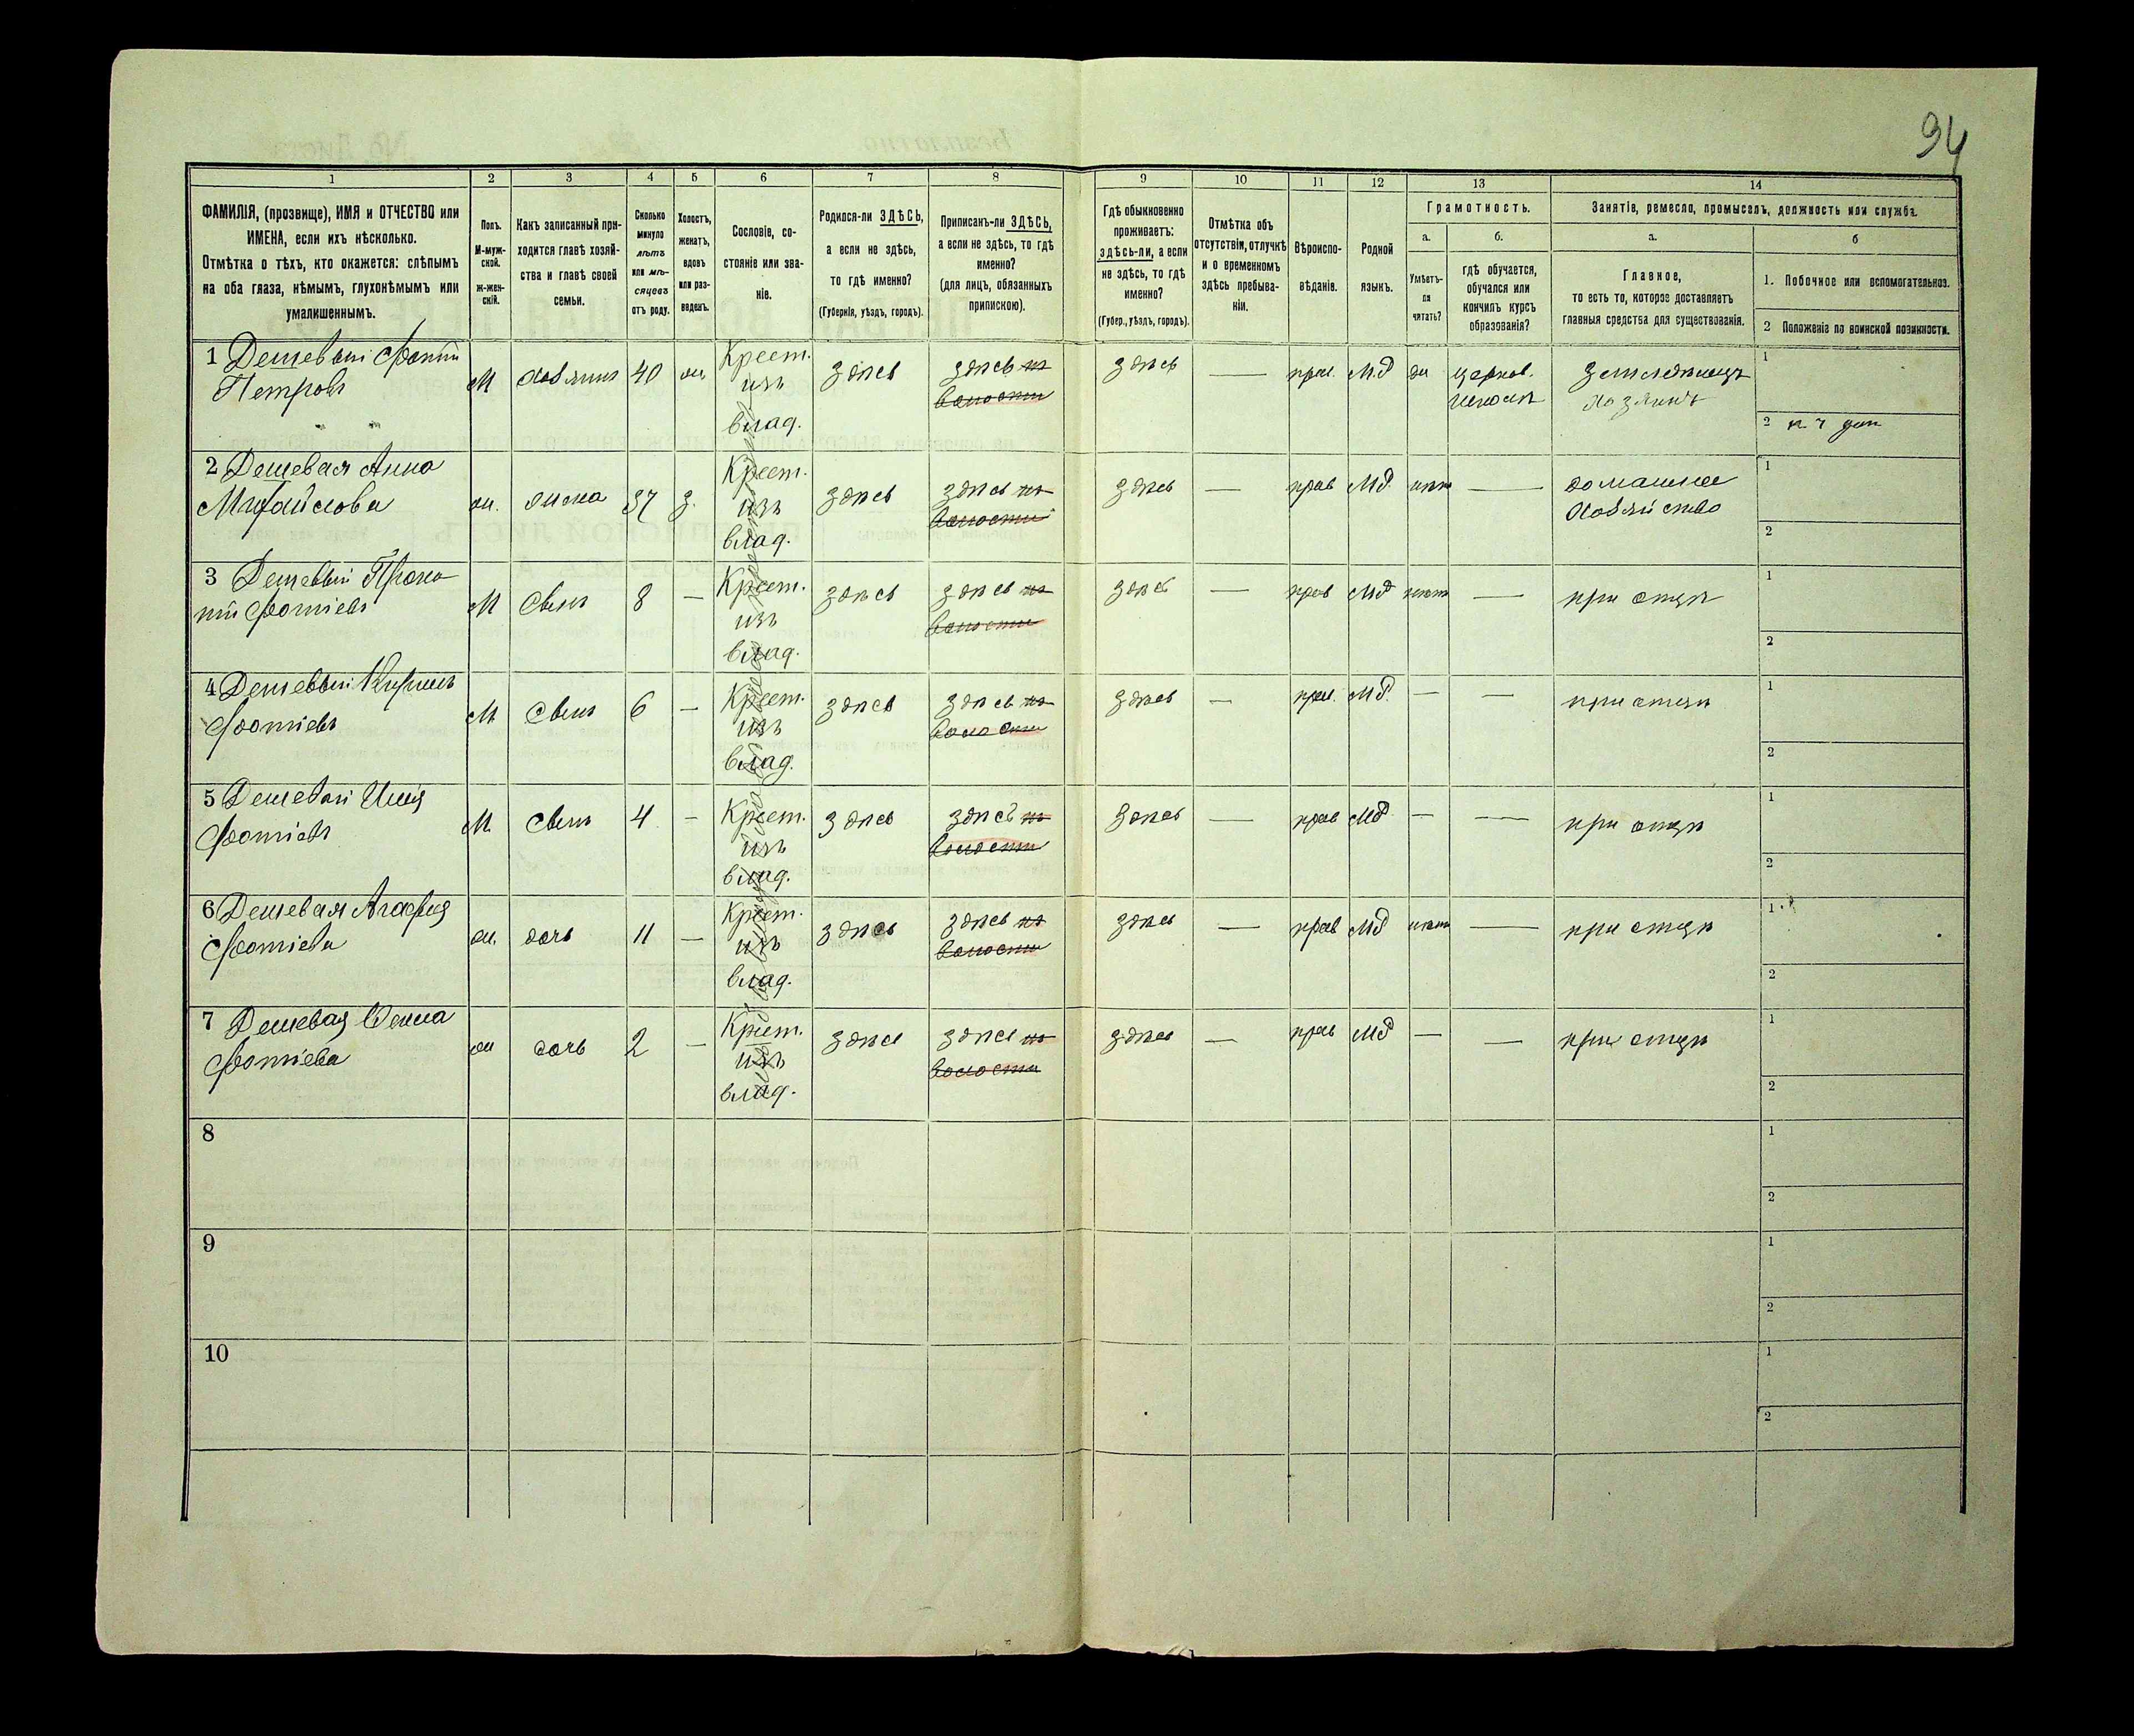 94
1 2 3 4 5 6 7 8 9 10 11 12 13 14
ФАМИЛІЯ, (прозвище), ИМЯ и ОТЧЕСТВО или
ИМЕНА, если ихъ нѣсколько.
Отмѣтка о тѣхъ, кто окажется: слѣпымъ
на оба глаза, нѣмымъ, глухонѣмымъ или
умалишеннымъ.
Полъ.
М-муж-
ской.
ж-жен-
скій.
Какъ записанный при-
ходится главѣ хозяй-
ства и главѣ своей
семьи.
Сколько
минуло
лѣтъ
или мѣ-
сяцевъ
отъ роду.
Холостъ,
женатъ,
вдовъ
или раз-
веденъ.
Сословіе, со-
стояніе или зва-
ніе.
Родился-ли ЗДѢСЬ,
а если не здѣсь,
то гдѣ именно?
(Губернія, уѣздъ, городъ).
Приписанъ-ли ЗДѢСЬ,
а если не здѣсь, то гдѣ
именно?
(для лицъ, обязанныхъ
припискою).
Гдѣ обыкновенно
проживаетъ:
здѣсь-ли, а если
не здѣсь, то гдѣ
именно?
(Губер., уѣздъ, городъ).
Отмѣтка объ
отсутствіи, отлучкѣ
и о временномъ
здѣсь пребыва-
ніи.
Вѣроиспо-
вѣданіе.
Родной
языкъ.
Грамотность.
а.
Умѣетъ-
ли
читать?
б.
гдѣ обучается,
обучался или
кончилъ курсъ
образованія?
Занятіе, ремесло, промыселъ, должность или служба.
а.
Главное,
то есть то, которое доставляетъ
главныя средства для существованія.
б
1. Побочное или вспомогательное.
2 Положеніе по воинской повинности.
1 Дешевый Фотій
Петровъ
М Хозяинъ 40 ж.
Крест.
изъ
влад.
здѣсь
здѣсь
волости
здѣсь — прав. М.Р да
церков.
школѣ
земледѣлецъ
хозяинъ
1
2
2 Дешевая Анна
Михайлова
ж. жена 37 з.
Крест.
изъ
влад.
здѣсь
здѣсь
волости
здѣсь — прав МР. нѣтъ —
домашнее
хозяйство
1
2
3 Дешевый Проко-
пій Фотіевъ
М Сынъ 8 —
Крест.
изъ
влад.
здѣсь
здѣсь
волости
здѣсь — прав МР нѣтъ — при отцѣ
1
2
4 Дешевый Кирилъ
Фотіевъ
М Сынъ 6 —
Крест.
изъ
влад.
здѣсь
здѣсь
волости
здѣсь — прав. МР. — — при отцѣ
1
2
5 Дешевый Илія
Фотіевъ
М Сынъ 4 —
Крест.
изъ
влад.
здѣсь
здѣсь
волости
здѣсь — прав МР — — при отцѣ
1
2
6 Дешевая Агафія
Фотіева
ж. дочь 11 —
Крест.
изъ
влад.
здѣсь
здѣсь
волости
здѣсь — прав МР нѣтъ — при отцѣ
1
2
7 Дешевая
Фотіева
ж дочь 2 —
Крест.
изъ
влад.
здѣсь
здѣсь
волости
здѣсь — прав МР — — при отцѣ
1
2
8
1
2
9
1
2
10
1
2